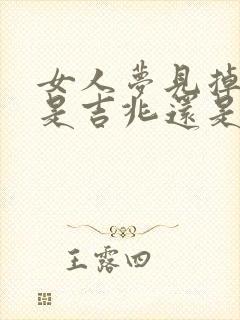 女人夢見掉
是吉兆還是
王露四